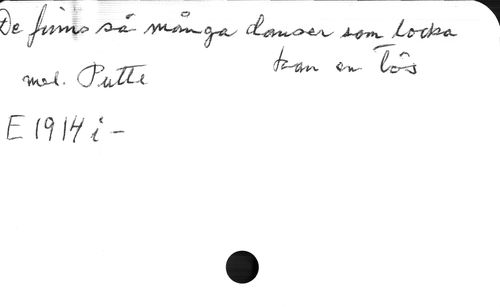 De finns så många danser som locka
kan en Tös
mel. Putte
E 1914 i –